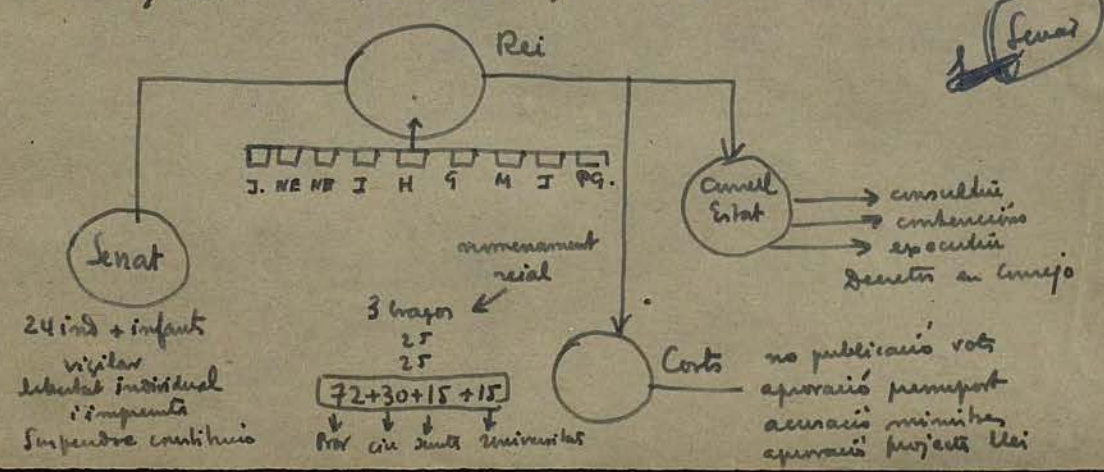 Rei
Senat
J. NE NE I H G M J PG.
Consell
Estat
consultiu
contenciós
executiu
Decretos en Consejo
Senat
24 ind + infants
vigilar
llibertat individual
i impremta
Suspendre constitució
nomenament
reial
3 braços
25
25
72+30+15+15
Prov ciu Junts Universitat
Corts
no publicació vots
aprovació pressupost
acusació ministres
aprovació projects llei